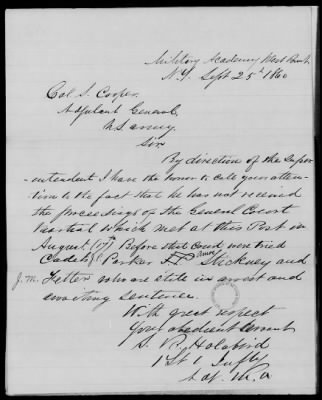 Military Academy West Point
N.Y. Sept 25th 1860
Col S. Cooper,
Adjutant General,
U.S. Army,
Sir
By direction of the Super-
-intendent I have the honor to call your atten-
tion to the fact that he has not received
the proceedings of the General Court
Martial which met at this Post in
August. (17th) Before that Court were tried
Cadets Parker Stickney and
J. M. Fetter who are still in arrest and
awaiting sentence.
With great respect
Your obedient servant
S. B. Holabird
1st Lt 1 Infty
Adj. M. A